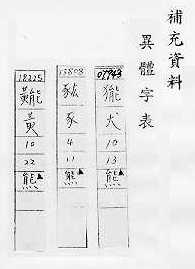 補充資料
異體字表
07943
㺀
犬
10
13
熊
13808
豕
4
11
熊
18225
黃
10
22
熊